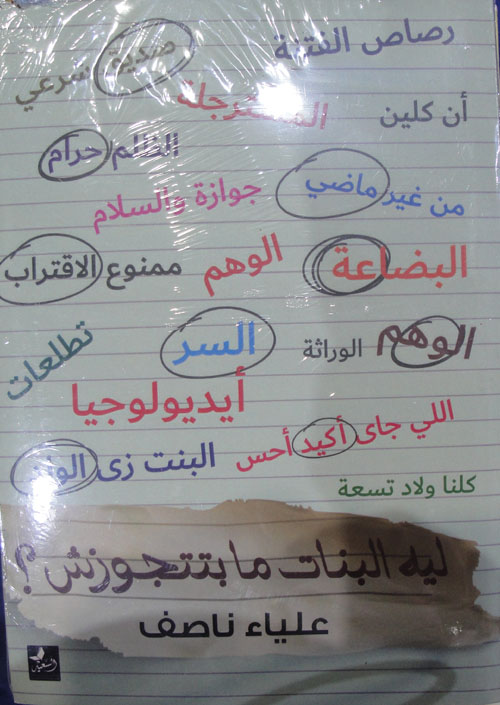 رصاص الفتنة
صدية شرعي
المسترجلة
أن كلين
الظلم حرام
من غير ماضي
جوازة والسلام
البضاعة
الوهم
ممنوع الاقتراب
الوهم
الوراثة
السر
تطلعات
أيديولوجيا
اللي جاى أكيد أحس
البنت زى الولد
كلنا ولاد تسعة
ليه البنات ما بتتجوزش؟
علياء ناصف